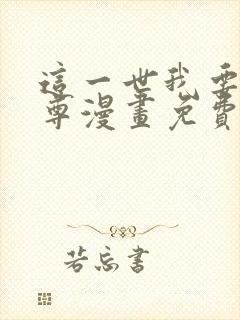 這一世我要
尊漫畫免費
若忘書